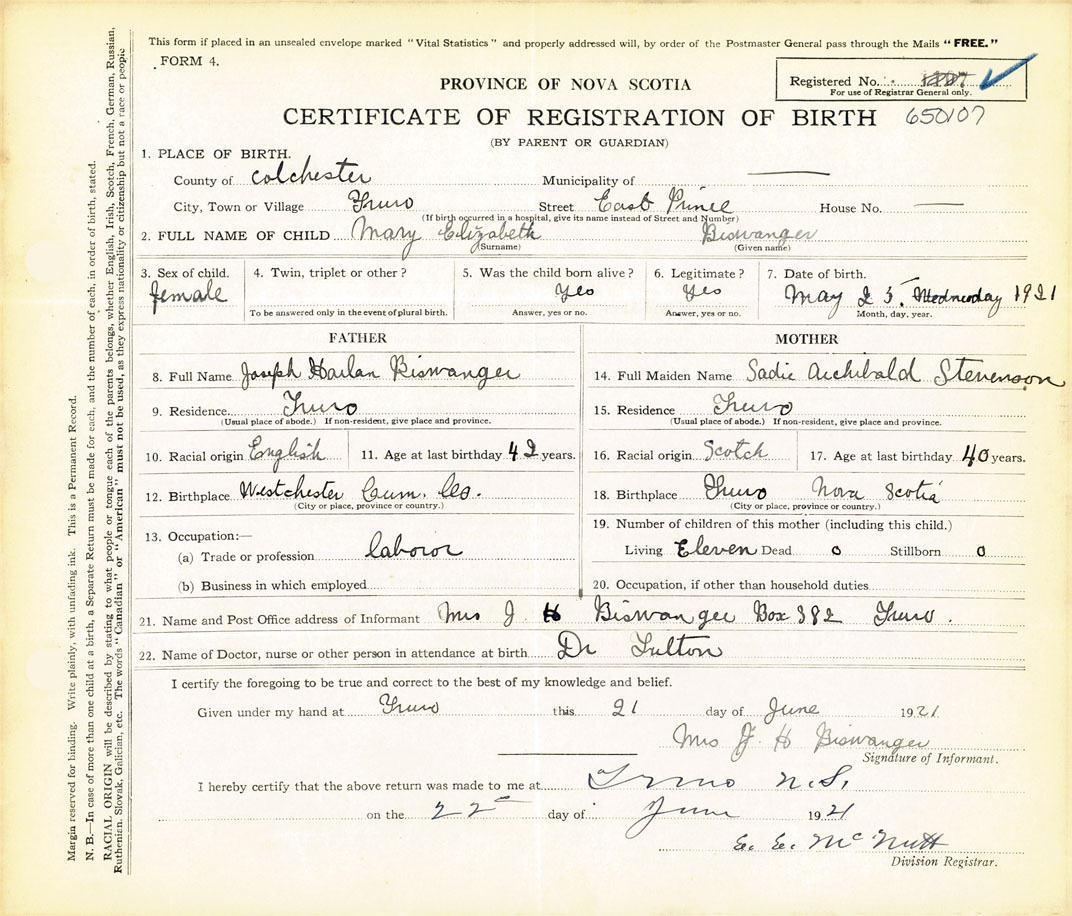 This form if placed in an unsealed envelope marked "Vital Statistics" and properly addressed will, by order of the Postmaster General pass through the Mails "FREE."
FORM 4.
Registered No.
For use of Registrar General only.
PROVINCE OF NOVA SCOTIA
CERTIFICATE OF REGISTRATION OF BIRTH 650107
(BY PARENT OR GUARDIAN)
1. PLACE OF BIRTH.
County of Colchester Municipality of
City, Town or Village Truro Street East Prince House No.
(If birth occurred in a hospital, give its name instead of Street and Number)
2. FULL NAME OF CHILD Mary Elizabeth Biswanger
(Surname) (Given name)
3. Sex of child. 4. Twin, triplet or other? 5. Was the child born alive? 6. Legitimate? 7. Date of birth.
female Yes Yes May 25. Wednesday 1921
To be answered only in the event of plural birth. Answer, yes or no. Answer, yes or no. Month, day, year.
FATHER
8. Full Name Joseph Harlan Biswanger
9. Residence Truro
(Usual place of abode.) If non-resident, give place and province.
10. Racial origin English 11. Age at last birthday 42 years.
12. Birthplace Westchester Cum. Co.
(City or place, province or country.)
13. Occupation:—
(a) Trade or profession laboror
(b) Business in which employed
MOTHER
14. Full Maiden Name Sadie Archibald Stevenson
15. Residence Truro
(Usual place of abode.) If non-resident, give place and province.
16. Racial origin Scotch 17. Age at last birthday 40 years.
18. Birthplace Truro Nova Scotia
(City or place, province or country.)
19. Number of children of this mother (including this child.)
Living Eleven Dead 0 Stillborn 0
20. Occupation, if other than household duties
21. Name and Post Office address of Informant Mrs J H Biswanger Box 382 Truro.
22. Name of Doctor, nurse or other person in attendance at birth Dr Fulton
I certify the foregoing to be true and correct to the best of my knowledge and belief.
Given under my hand at Truro this 21 day of June 1921
Mrs J. H Biswanger
Signature of Informant.
I hereby certify that the above return was made to me at Truro N.S.
on the 22 day of June 1921
E. E. McNutt
Division Registrar.
Margin reserved for binding. Write plainly, with unfading ink. This is a Permanent Record.
N. B.—In case of more than one child at a birth, a Separate Return must be made for each, and the number of each, in order of birth, stated.
RACIAL ORIGIN will be described by stating to what people or tongue each of the parents belongs, whether English, Irish, Scotch, French, German, Russian,
Ruthenian, Slovak, Galician, etc. The words "Canadian" or "American" must not be used, as they express nationality or citizenship but not a race or people